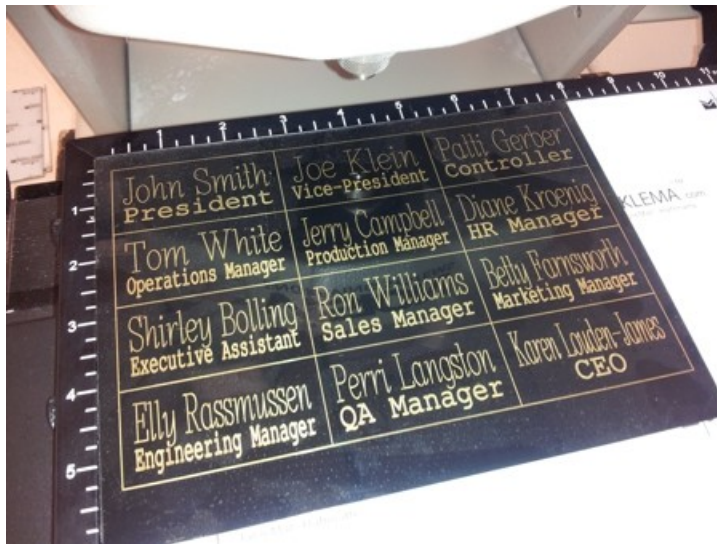 1 2 3 4 5 6 7 8 9 10 11
John Smith
President
Joe Klein
Vice-President
Patti Gerber
Controller
1
Tom White
Operations Manager
Jerry Campbell
Production Manager
Diane Kroenig
HR Manager
KLEMA.com
2
Shirley Bolling
Executive Assistant
Ron Williams
Sales Manager
Betty Farnsworth
Marketing Manager
3
Elly Rassmussen
Engineering Manager
Perri Langston
QA Manager
Karen Louden-James
CEO
4
5